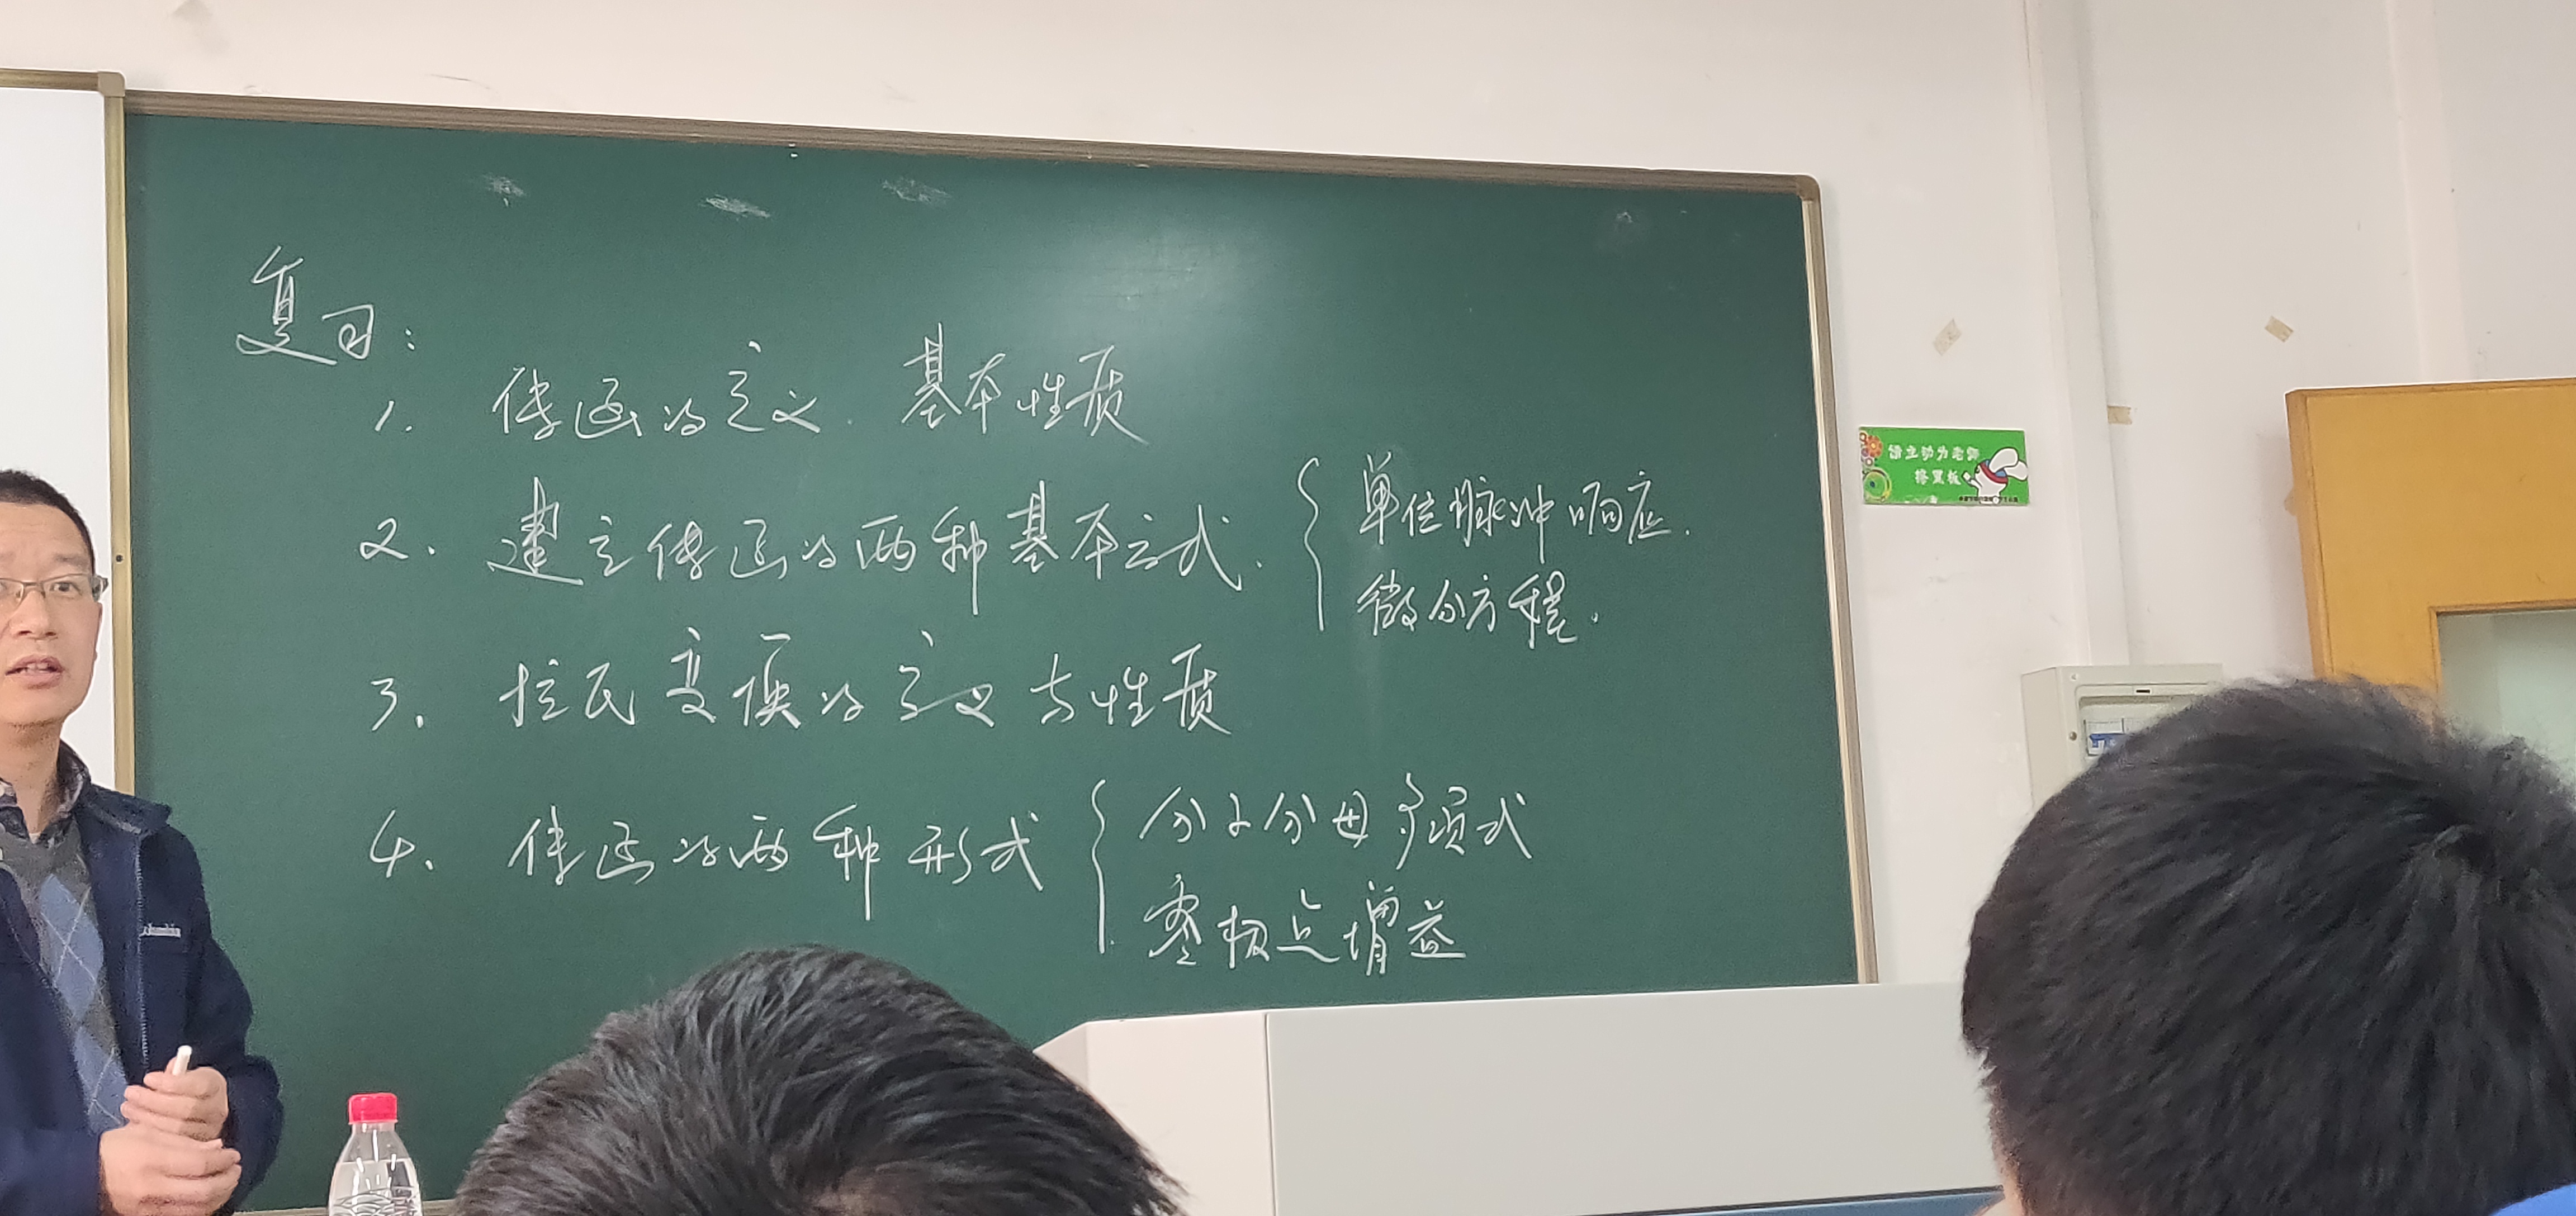 复习：
1. 传函的定义. 基本性质
2. 建立传函的两种基本方式. { 单位脉冲响应.
微分方程.
3. 拉氏变换的定义与性质
4. 传函的两种形式 { 分子分母多项式
零极点增益
请主动为老师
擦黑板